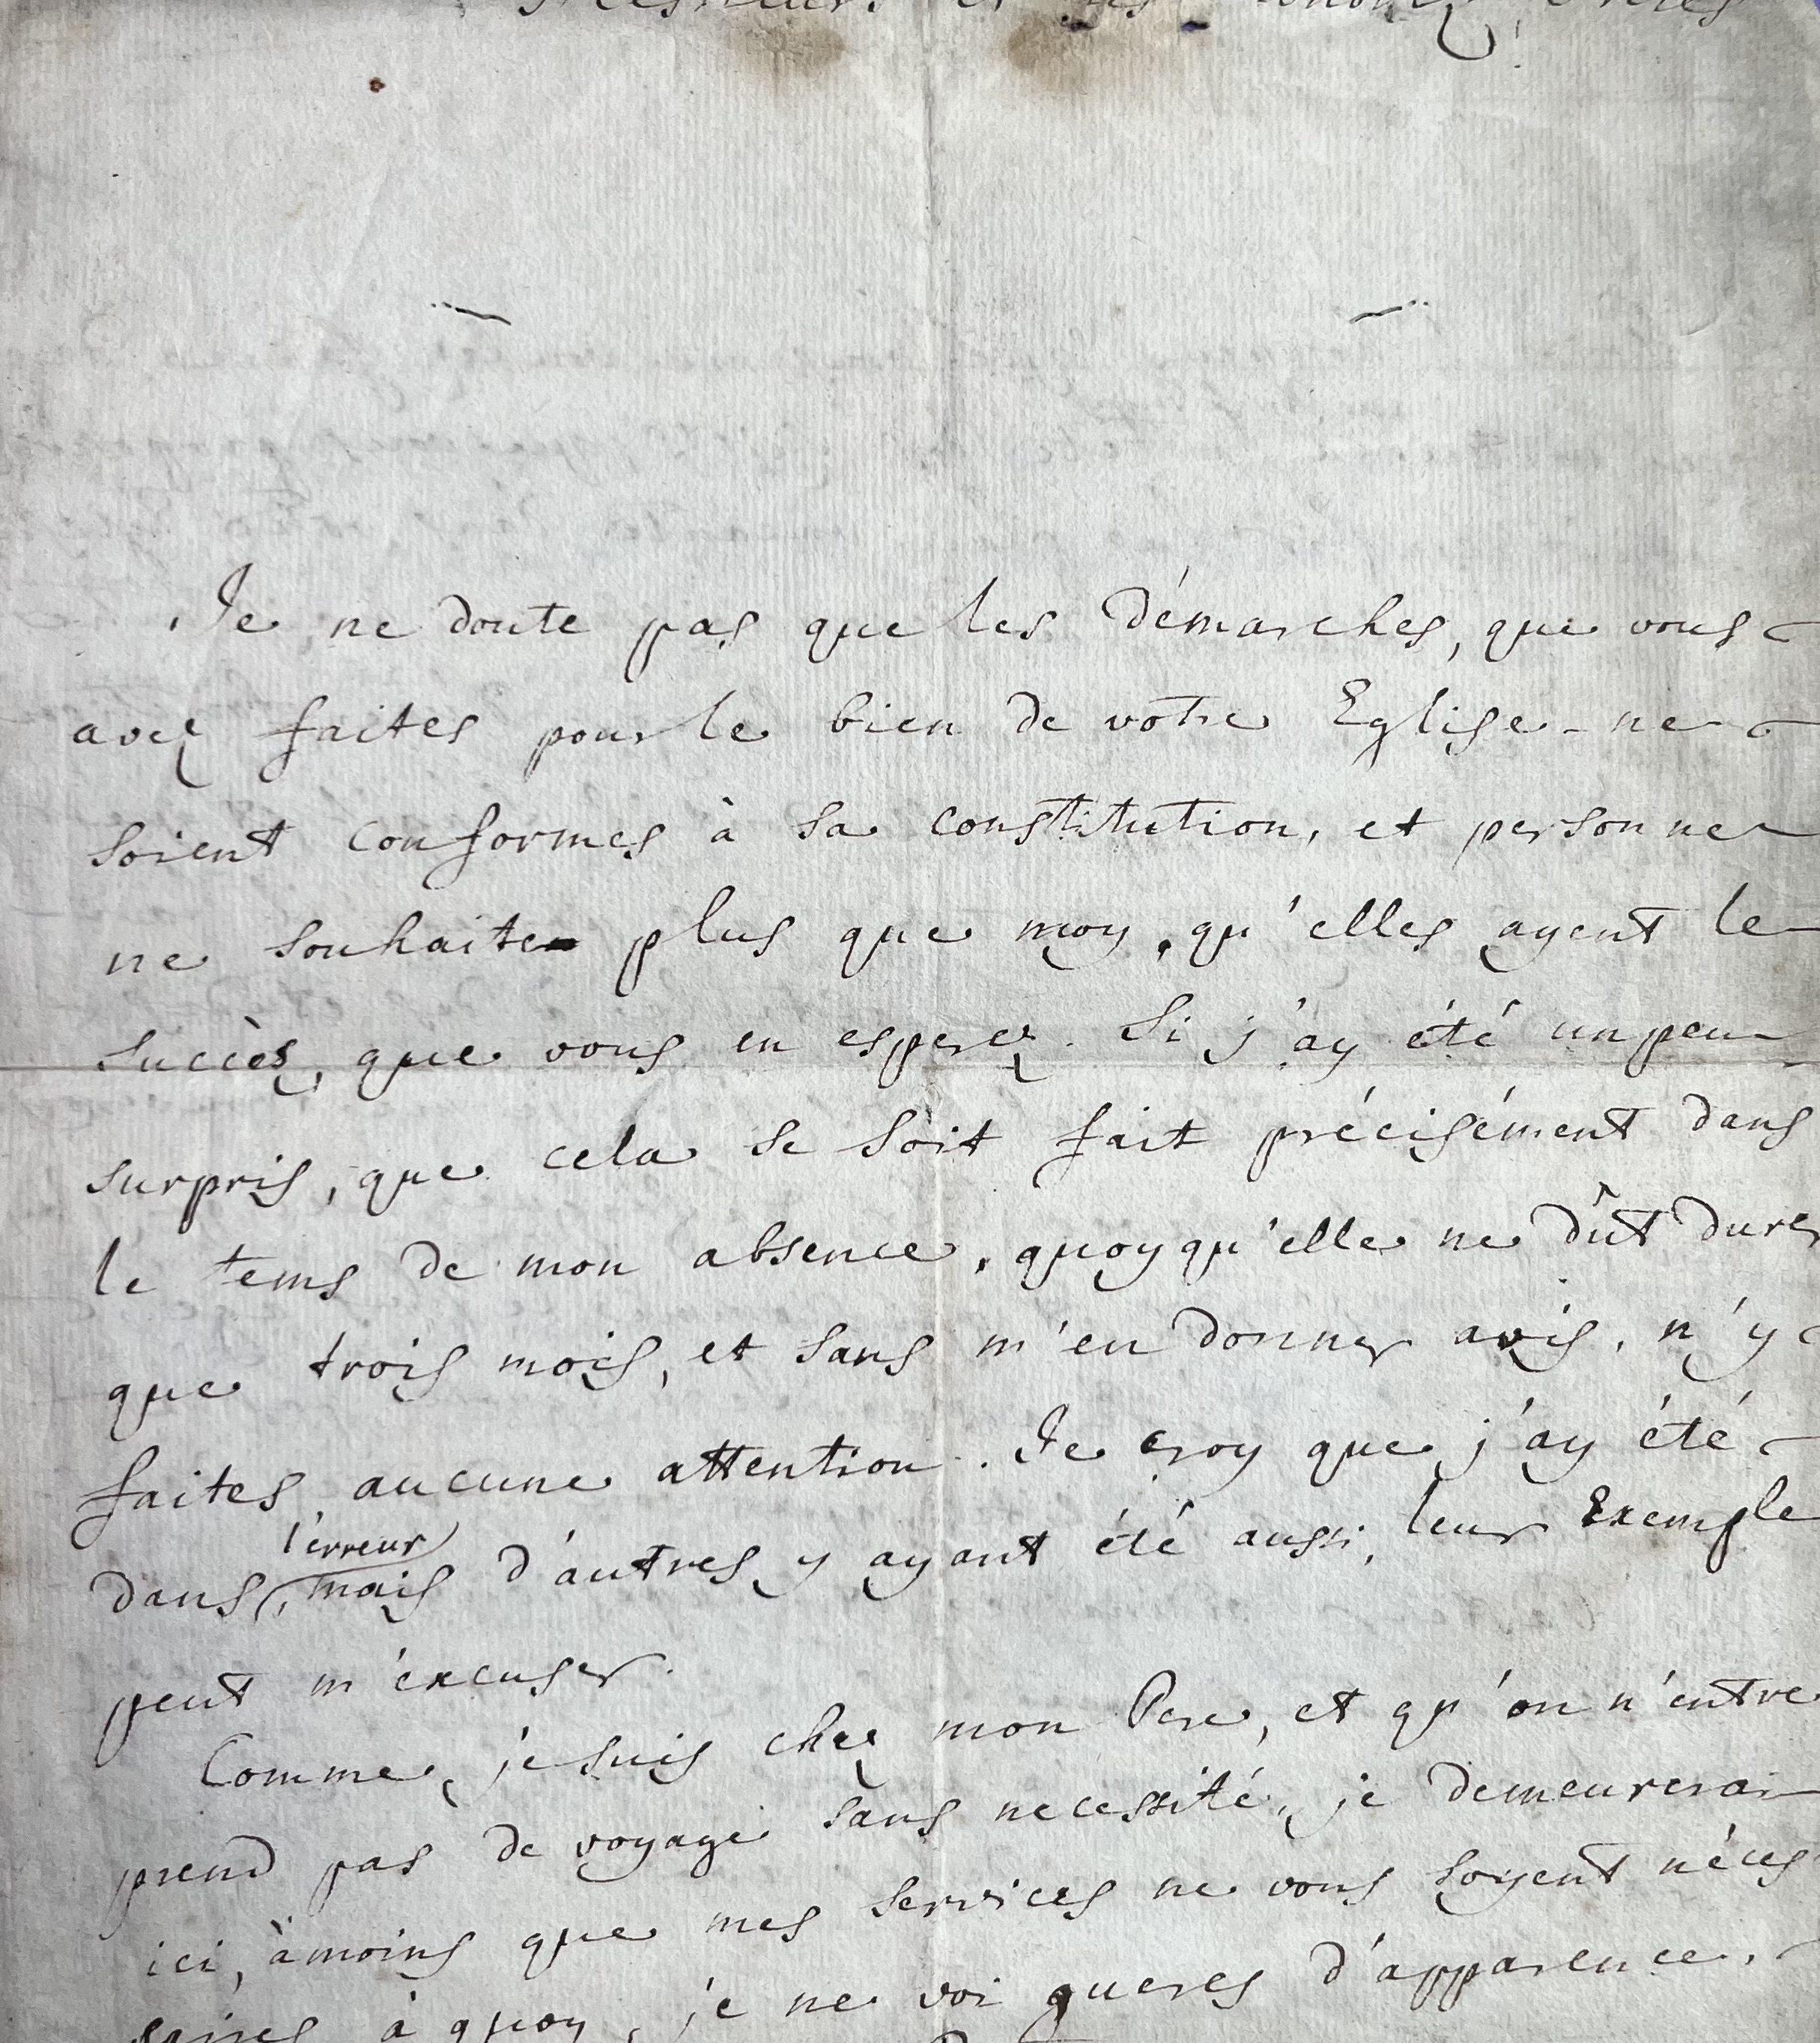 Messieurs et très honorez Freres
Je ne doute pas que les démarches, que vous
avez faites pour le bien de votre Eglise ne
soient conformes à sa constitution, et personne
ne souhaite plus que moy, qu'elles ayent le
succès, que vous en esperez. Si j'ay été un peu
surpris, que cela se soit fait précisément dans
le tems de mon absence, quoyqu'elle ne dût durer
que trois mois, et sans m'en donner avis, n'y
faites aucune attention. Je croy que j'ay été
dans l'erreur, mais d'autres y ayant été aussi, leur Exemple
peut m'excuser.
Comme je suis chez mon Pere, et qu'on n'entre
prend pas de voyage sans necessité, je demeurerai
ici, àmoins que mes services ne vous soyent néces
saires à quoy, je ne voi gueres d'apparence.